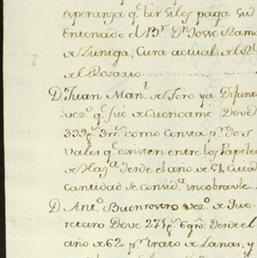 esperanza q.e bir silos paga su
entenado el B.r D.n Josse Ram
de Zuñiga, Cura actual del R.l
del Rosario.
D. Juan Man.l de Toro ya Difunt
vez.o q.e fue de Cuencame Deve
339p.s 3r.s como Consta p.r dos
Vales q.e existen entre los Papeles
de Haz.a desde el año de 51. Cuia
Cantidad se Conside incobrable
D. Ant.o Buenrostro vez.o de Que
retaro Deve 275p.s 6gr.s desde el
año de 62 p.r trato de Lanas, y